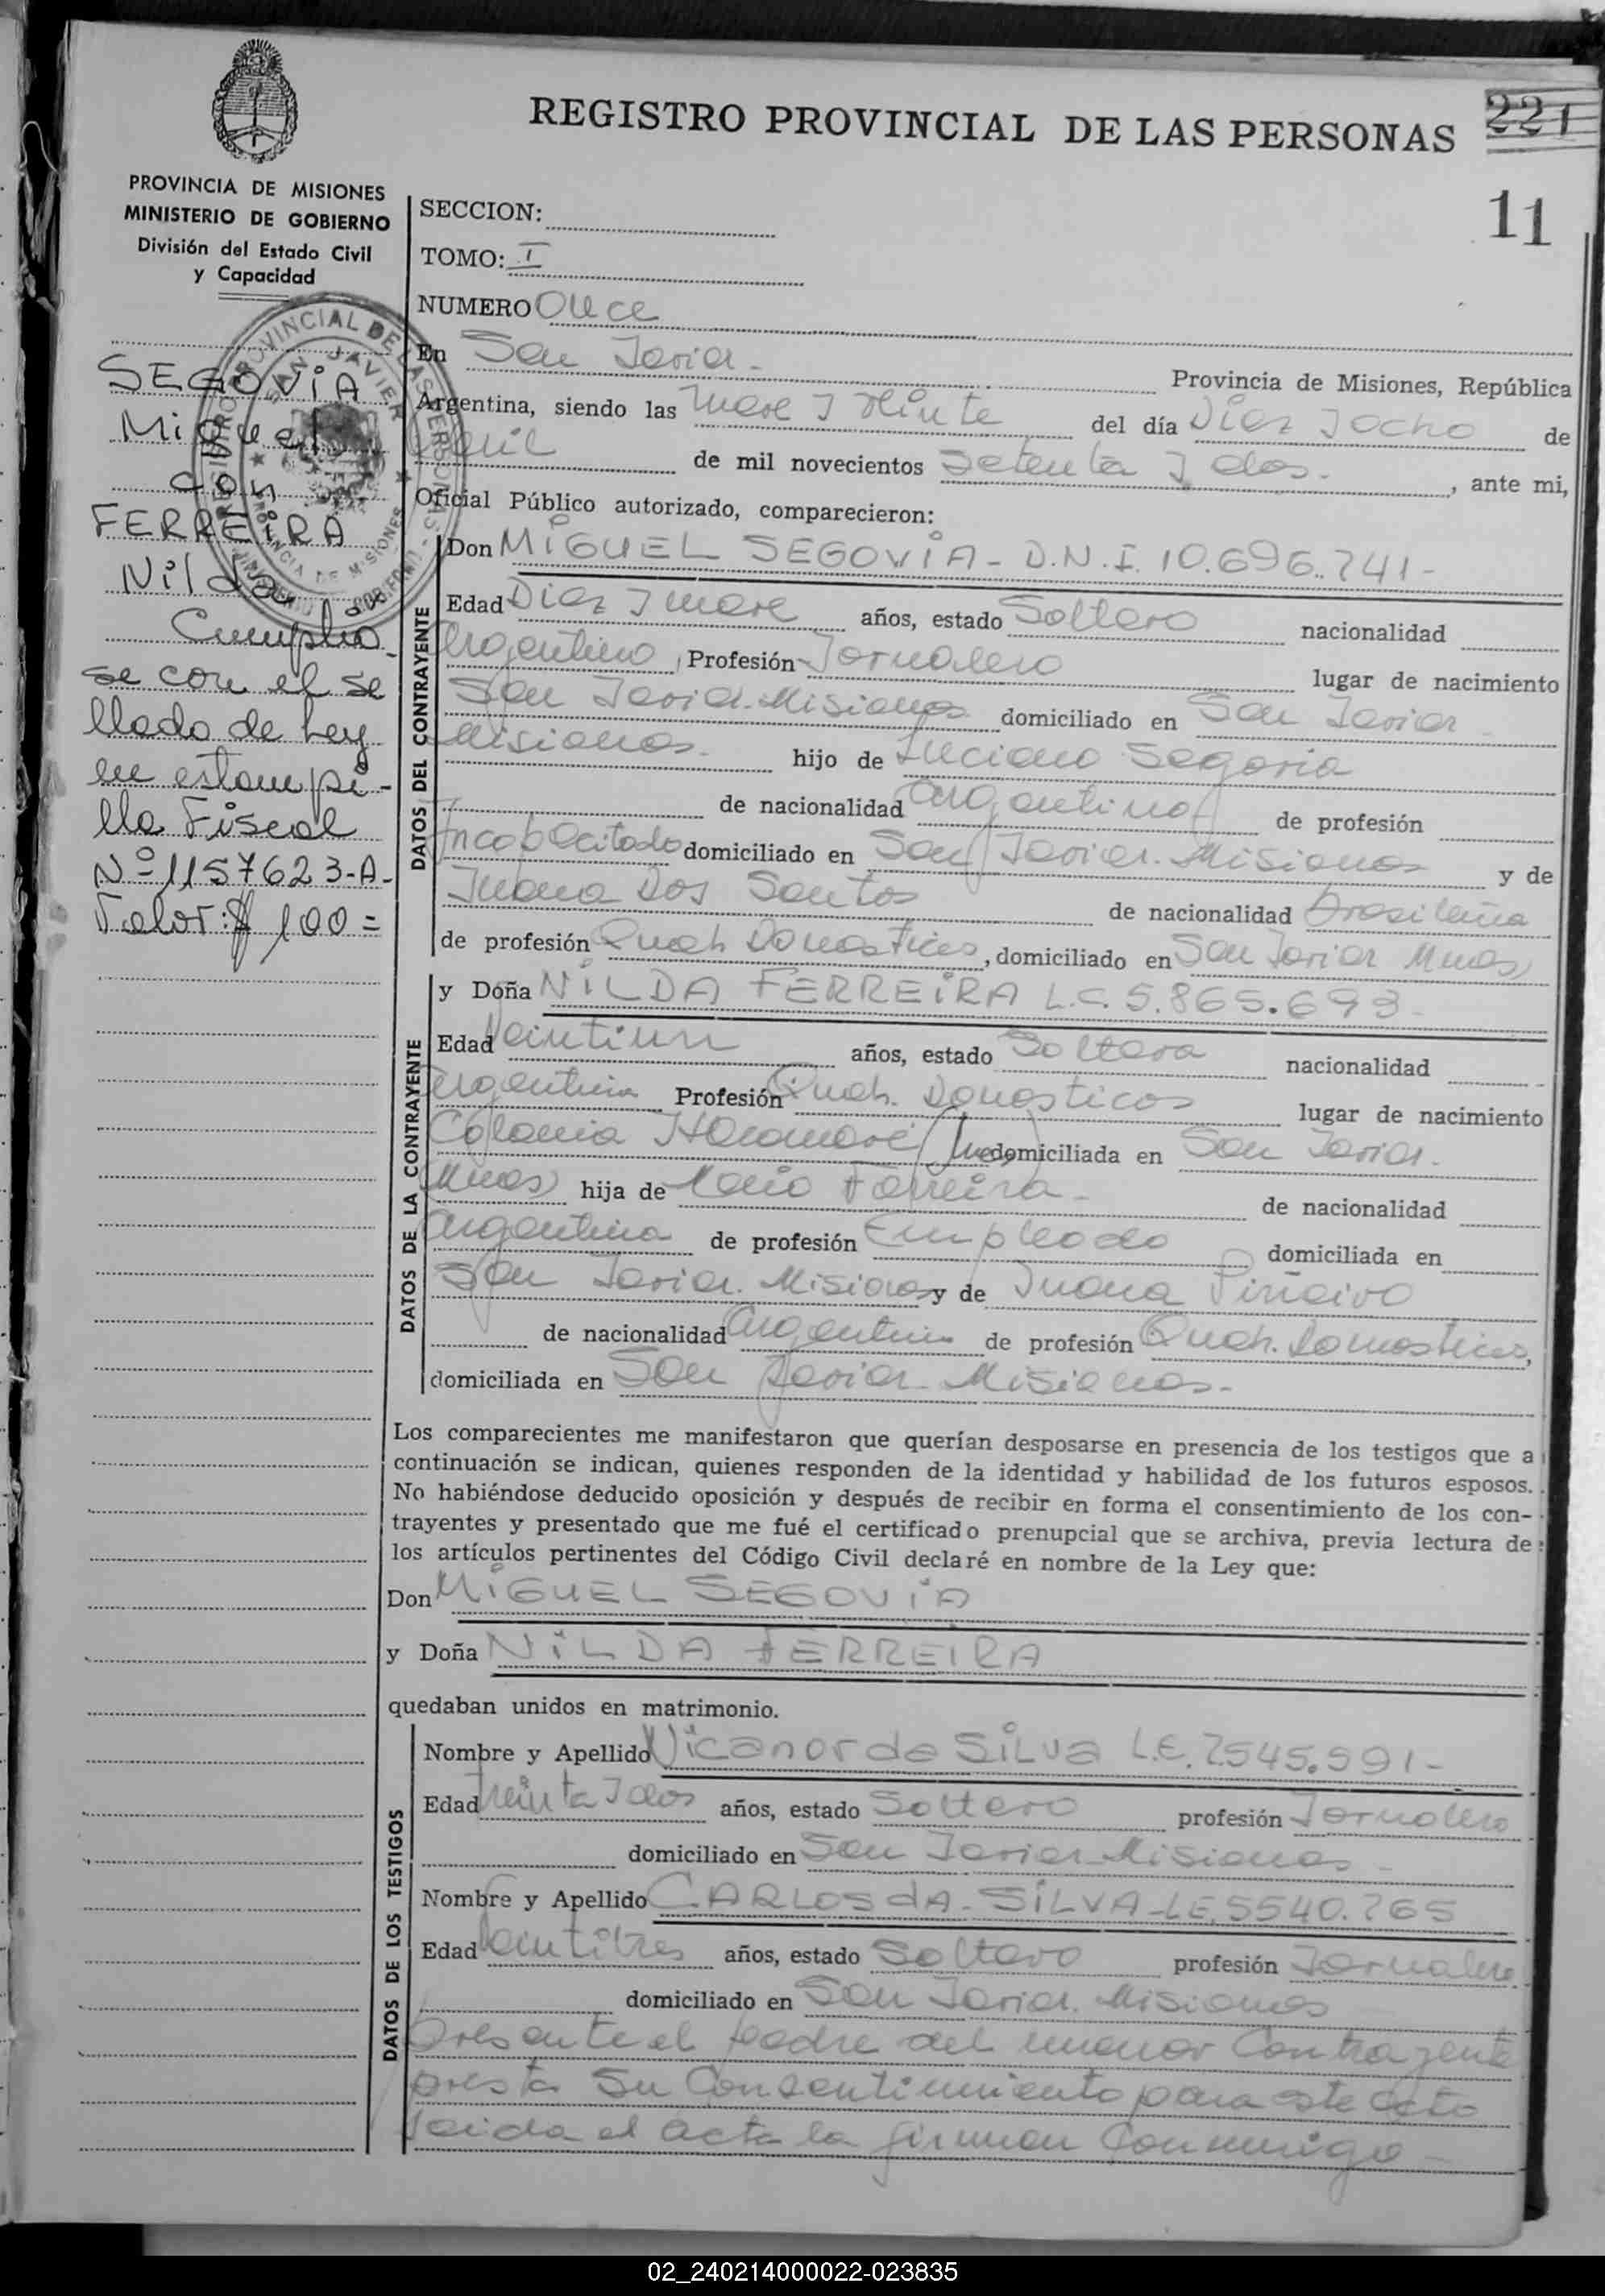 REGISTRO PROVINCIAL DE LAS PERSONAS
221
11
PROVINCIA DE MISIONES
MINISTERIO DE GOBIERNO
División del Estado Civil
y Capacidad
SECCION:
TOMO: I
NUMERO Once
SEGOVIA
Miguel
con
FERREIRA
Nilda
Cumplio
se con el se
llado de Ley
en estampi-
lla Fiscal
Nº 1157623-A-
Valor: $ 100=
En San Javier - Provincia de Misiones, República
Argentina, siendo las nueve y veinte del día Diez y ocho de
abril de mil novecientos setenta y dos. , ante mi,
Oficial Público autorizado, comparecieron:
DATOS DEL CONTRAYENTE
Don MIGUEL SEGOVIA - D.N.I. 10.696.741-
Edad Diez y nueve años, estado Soltero nacionalidad
argentino, Profesión Jornalero lugar de nacimiento
San Javier. Misiones domiciliado en San Javier
Misiones. hijo de Luciano Segovia
de nacionalidad argentino de profesión
Incapacitado domiciliado en San Javier. Misiones y de
Juana Dos Santos de nacionalidad Brasileña
de profesión Queh. Domesticos, domiciliado en San Javier Mnes)
DATOS DE LA CONTRAYENTE
y Doña NILDA FERREIRA L.C. 5.865.693-
Edad Veintiun años, estado Soltera nacionalidad
argentina Profesión Queh. Domesticos lugar de nacimiento
Colonia (Mnes) domiciliada en San Javier.
(Mnes) hija de Ferreira - de nacionalidad
argentina de profesión Empleado domiciliada en
San Javier. Misiones y de Juana Piñeiro
de nacionalidad argentina de profesión Queh. Domesticos,
domiciliada en San Javier. Misiones.-
Los comparecientes me manifestaron que querían desposarse en presencia de los testigos que a
continuación se indican, quienes responden de la identidad y habilidad de los futuros esposos.
No habiéndose deducido oposición y después de recibir en forma el consentimiento de los con-
trayentes y presentado que me fué el certificado prenupcial que se archiva, previa lectura de
los artículos pertinentes del Código Civil declaré en nombre de la Ley que:
Don MIGUEL SEGOVIA
y Doña NILDA FERREIRA
quedaban unidos en matrimonio.
DATOS DE LOS TESTIGOS
Nombre y Apellido Nicanor da Silva L.E. 7.545.591-
Edad treinta y dos años, estado Soltero profesión Jornalero
domiciliado en San Javier-Misiones -
Nombre y Apellido CARLOS dA-SILVA-L.E. 5540.765
Edad Veintitres años, estado Soltero profesión Jornalero
domiciliado en San Javier. Misiones
Presente el padre del menor Contrayente
presta su Consentimiento para este acto
leida el acta la firman Conmigo -
02_240214000022-023835